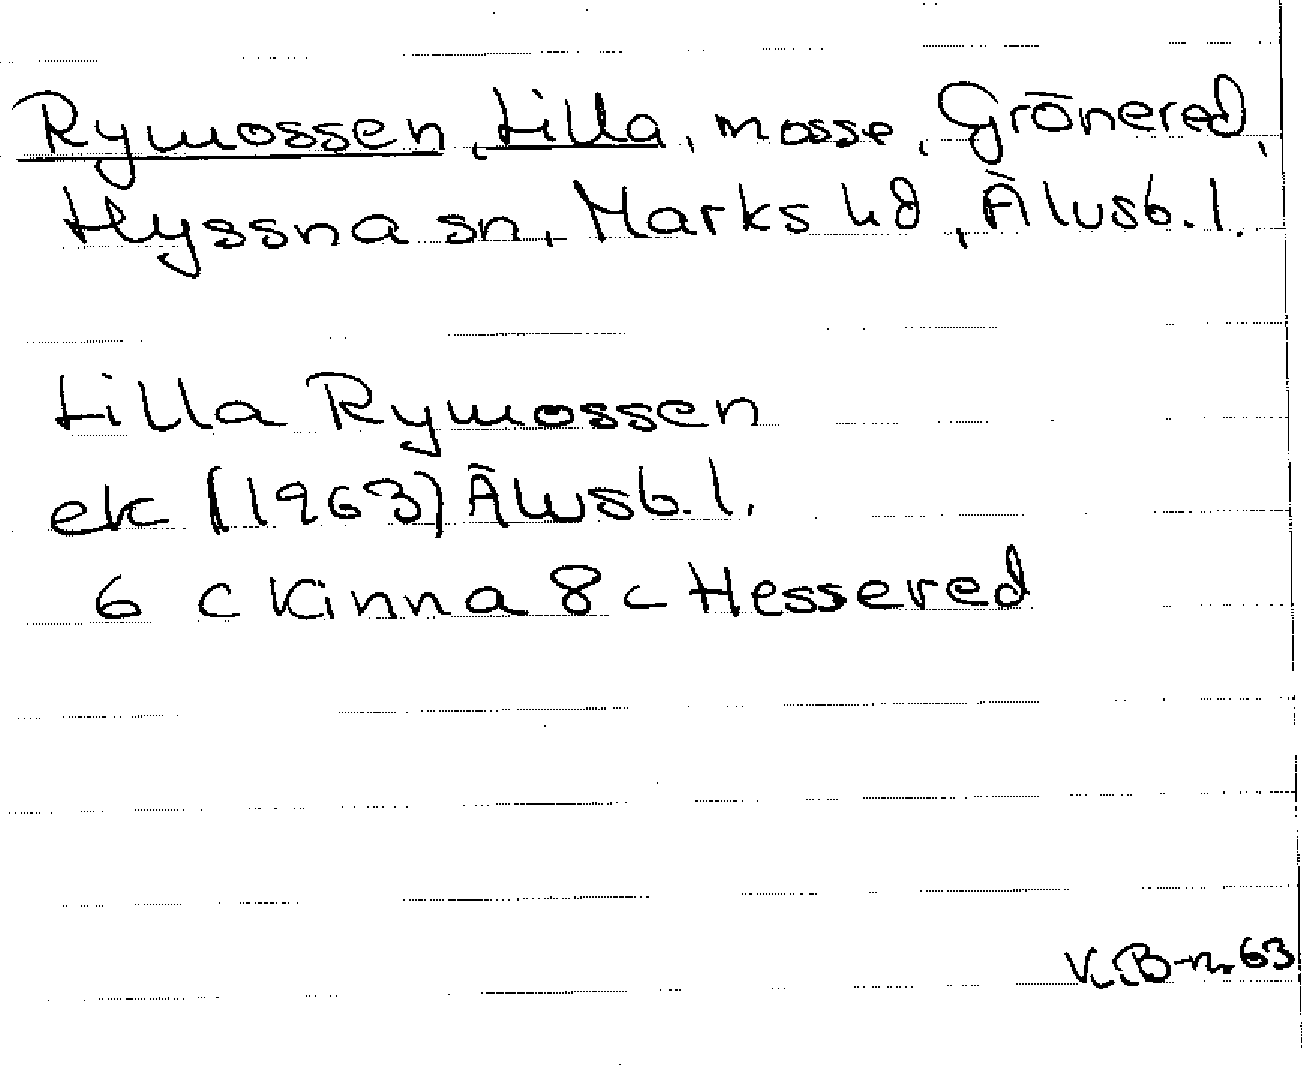 Rymossen, Lilla, mosse, Grönered,
Hyssna sn, Marks hd, Älvsb. l.
Lilla Rymossen
ek (1963) Älvsb. l.
6 c Kinna 8 c Hessered
K.B-m 63